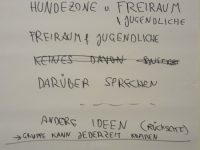 HUNDEZONE u. FREIRAUM
f. JUGENDLICHE
FREIRAUM f. JUGENDLICHE
KEINES DAVON
DARÜBER SPRECHEN
ANDERE IDEEN (RÜCKSEITE)
→ GRUPPE KANN JEDERZEIT